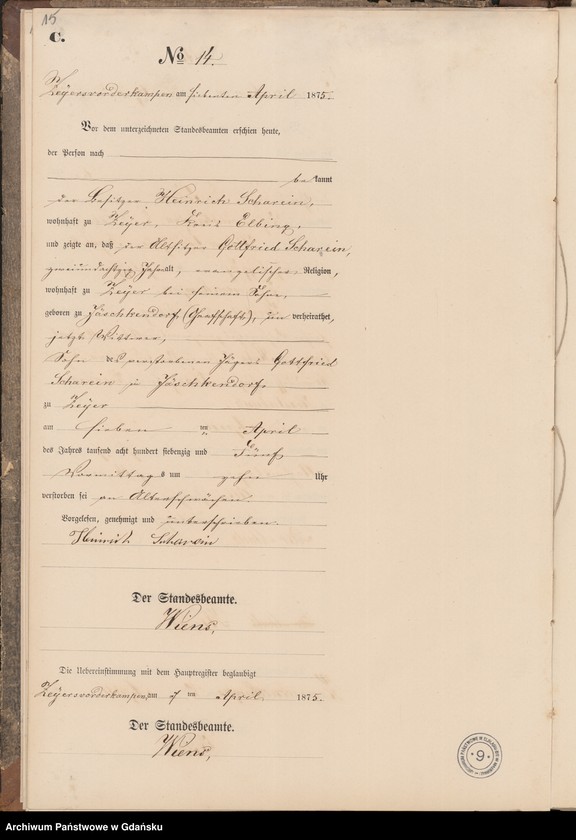 15
C.
No 14.
Zeyersvorderkampen am siebenten April 1875.
Vor dem unterzeichneten Standesbeamten erschien heute,
der Person nach
bekannt
der Besitzer Heinrich Scharein,
wohnhaft zu Zeyer, Kreis Elbing,
und zeigte an, daß der Altsitzer Gottfried Scharein,
zweiundachtzig Jahr alt, evangelischer Religion,
wohnhaft zu Zeyer bei seinem Sohne,
geboren zu Jäschkendorf, verheirathet,
jetzt Wittwer,
Sohn des verstorbenen Jägers Gottfried
Scharein zu Jäschkendorf,
zu Zeyer
am sieben ten April
des Jahres tausend acht hundert siebenzig und Fünf
Vormittags um zehn Uhr
verstorben sei an Altersschwäche.
Vorgelesen, genehmigt und unterschrieben.
Heinrich Scharein
Der Standesbeamte.
Wiens,
Die Uebereinstimmung mit dem Hauptregister beglaubigt
Zeyersvorderkampen, am 7 ten April 1875.
Der Standesbeamte.
Wiens,
9
Archiwum Państwowe w Gdańsku